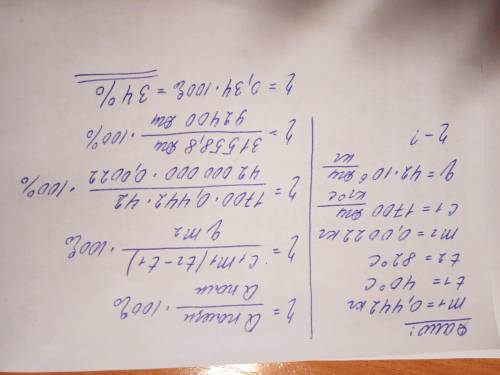 Дано:
m₁ = 0,442 кг
t₁ = 40°C
t₂ = 82°C
m₂ = 0,0022 кг
c₁ = 1700 Дж/кг°C
q = 42·10⁶ Дж/кг
η - ?
η = Q полезн / Q полн · 100%
η = c₁ m₁ (t₂ - t₁) / q m₂ · 100%
η = 1700 · 0,442 · 42 / 42 000 000 · 0,0022 · 100%
η = 31558,8 Дж / 92400 Дж · 100%
η = 0,34 · 100% = 34%